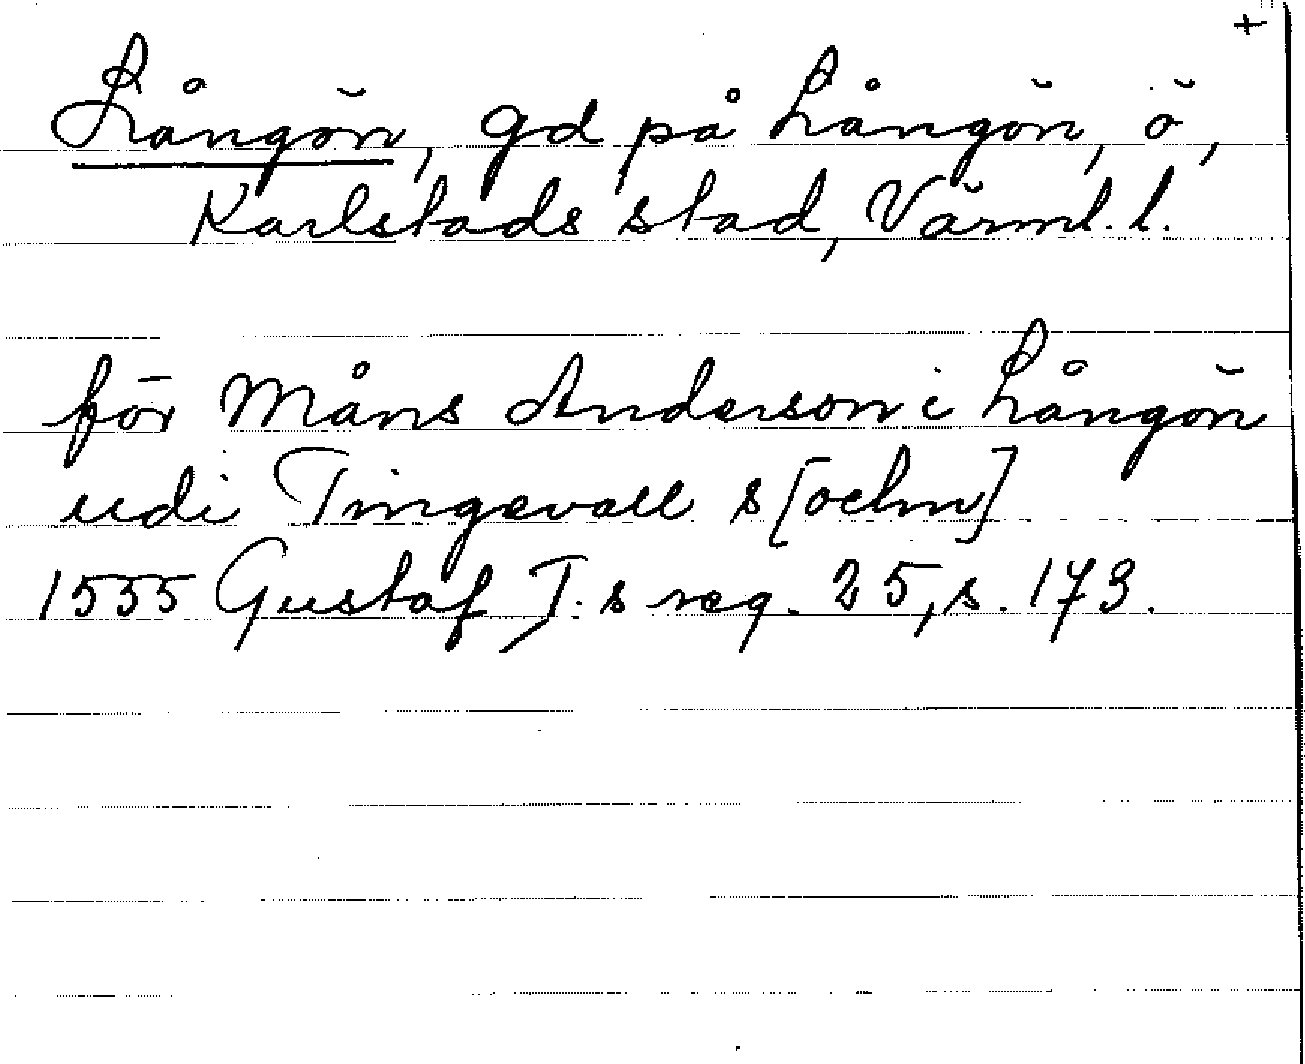 +
Långön, gd på Långön, ö,
Karlstads stad, Värml. l.
för Måns Anderson i Långön
udi Tingevall s[ochn]
1555 Gustaf I. s reg. 25, s. 173.